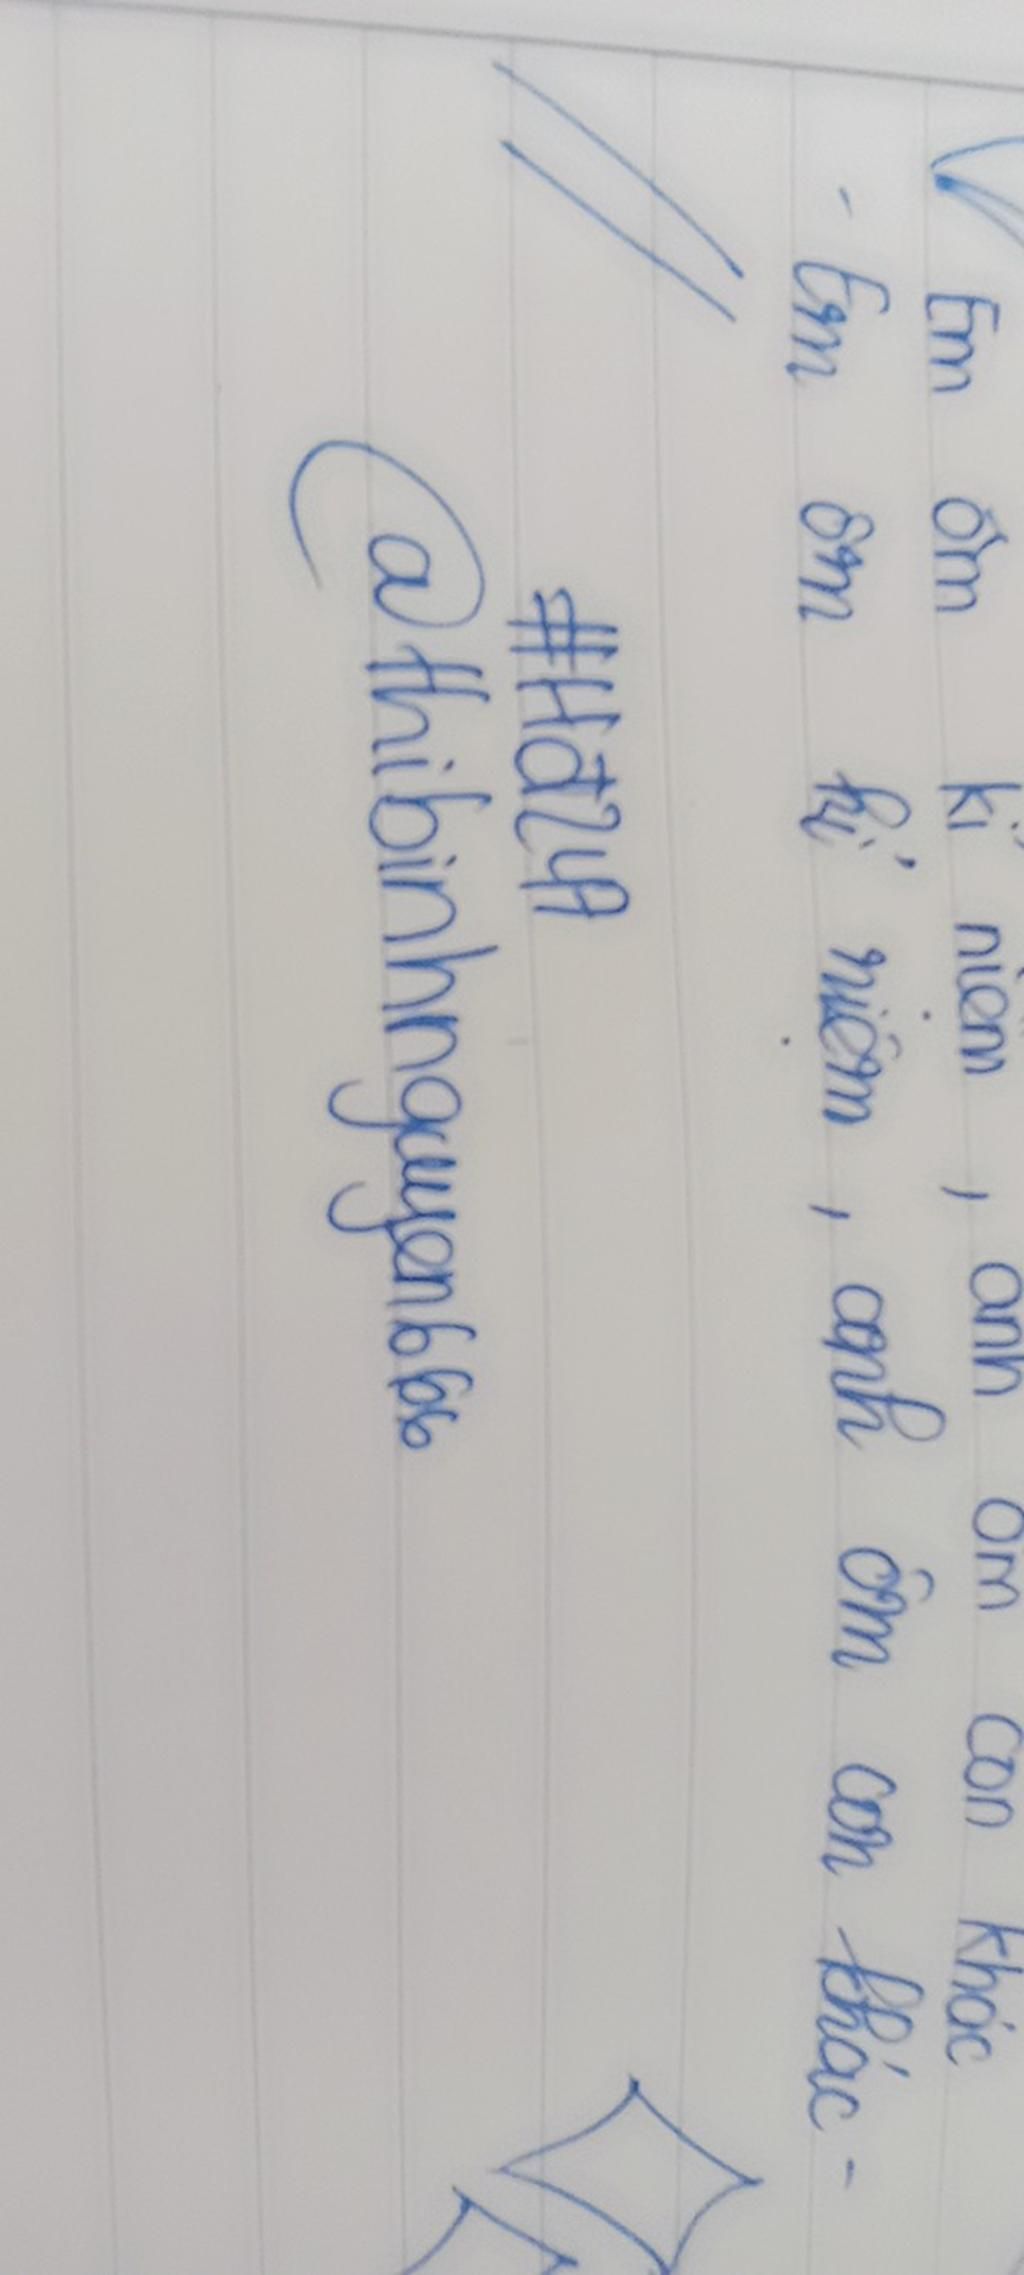 Em ôm kỉ niệm, anh ôm con khác
- Em ôm kỉ niệm, anh ôm con khác -
#Hđ2yn
@thibinhnguyenbb